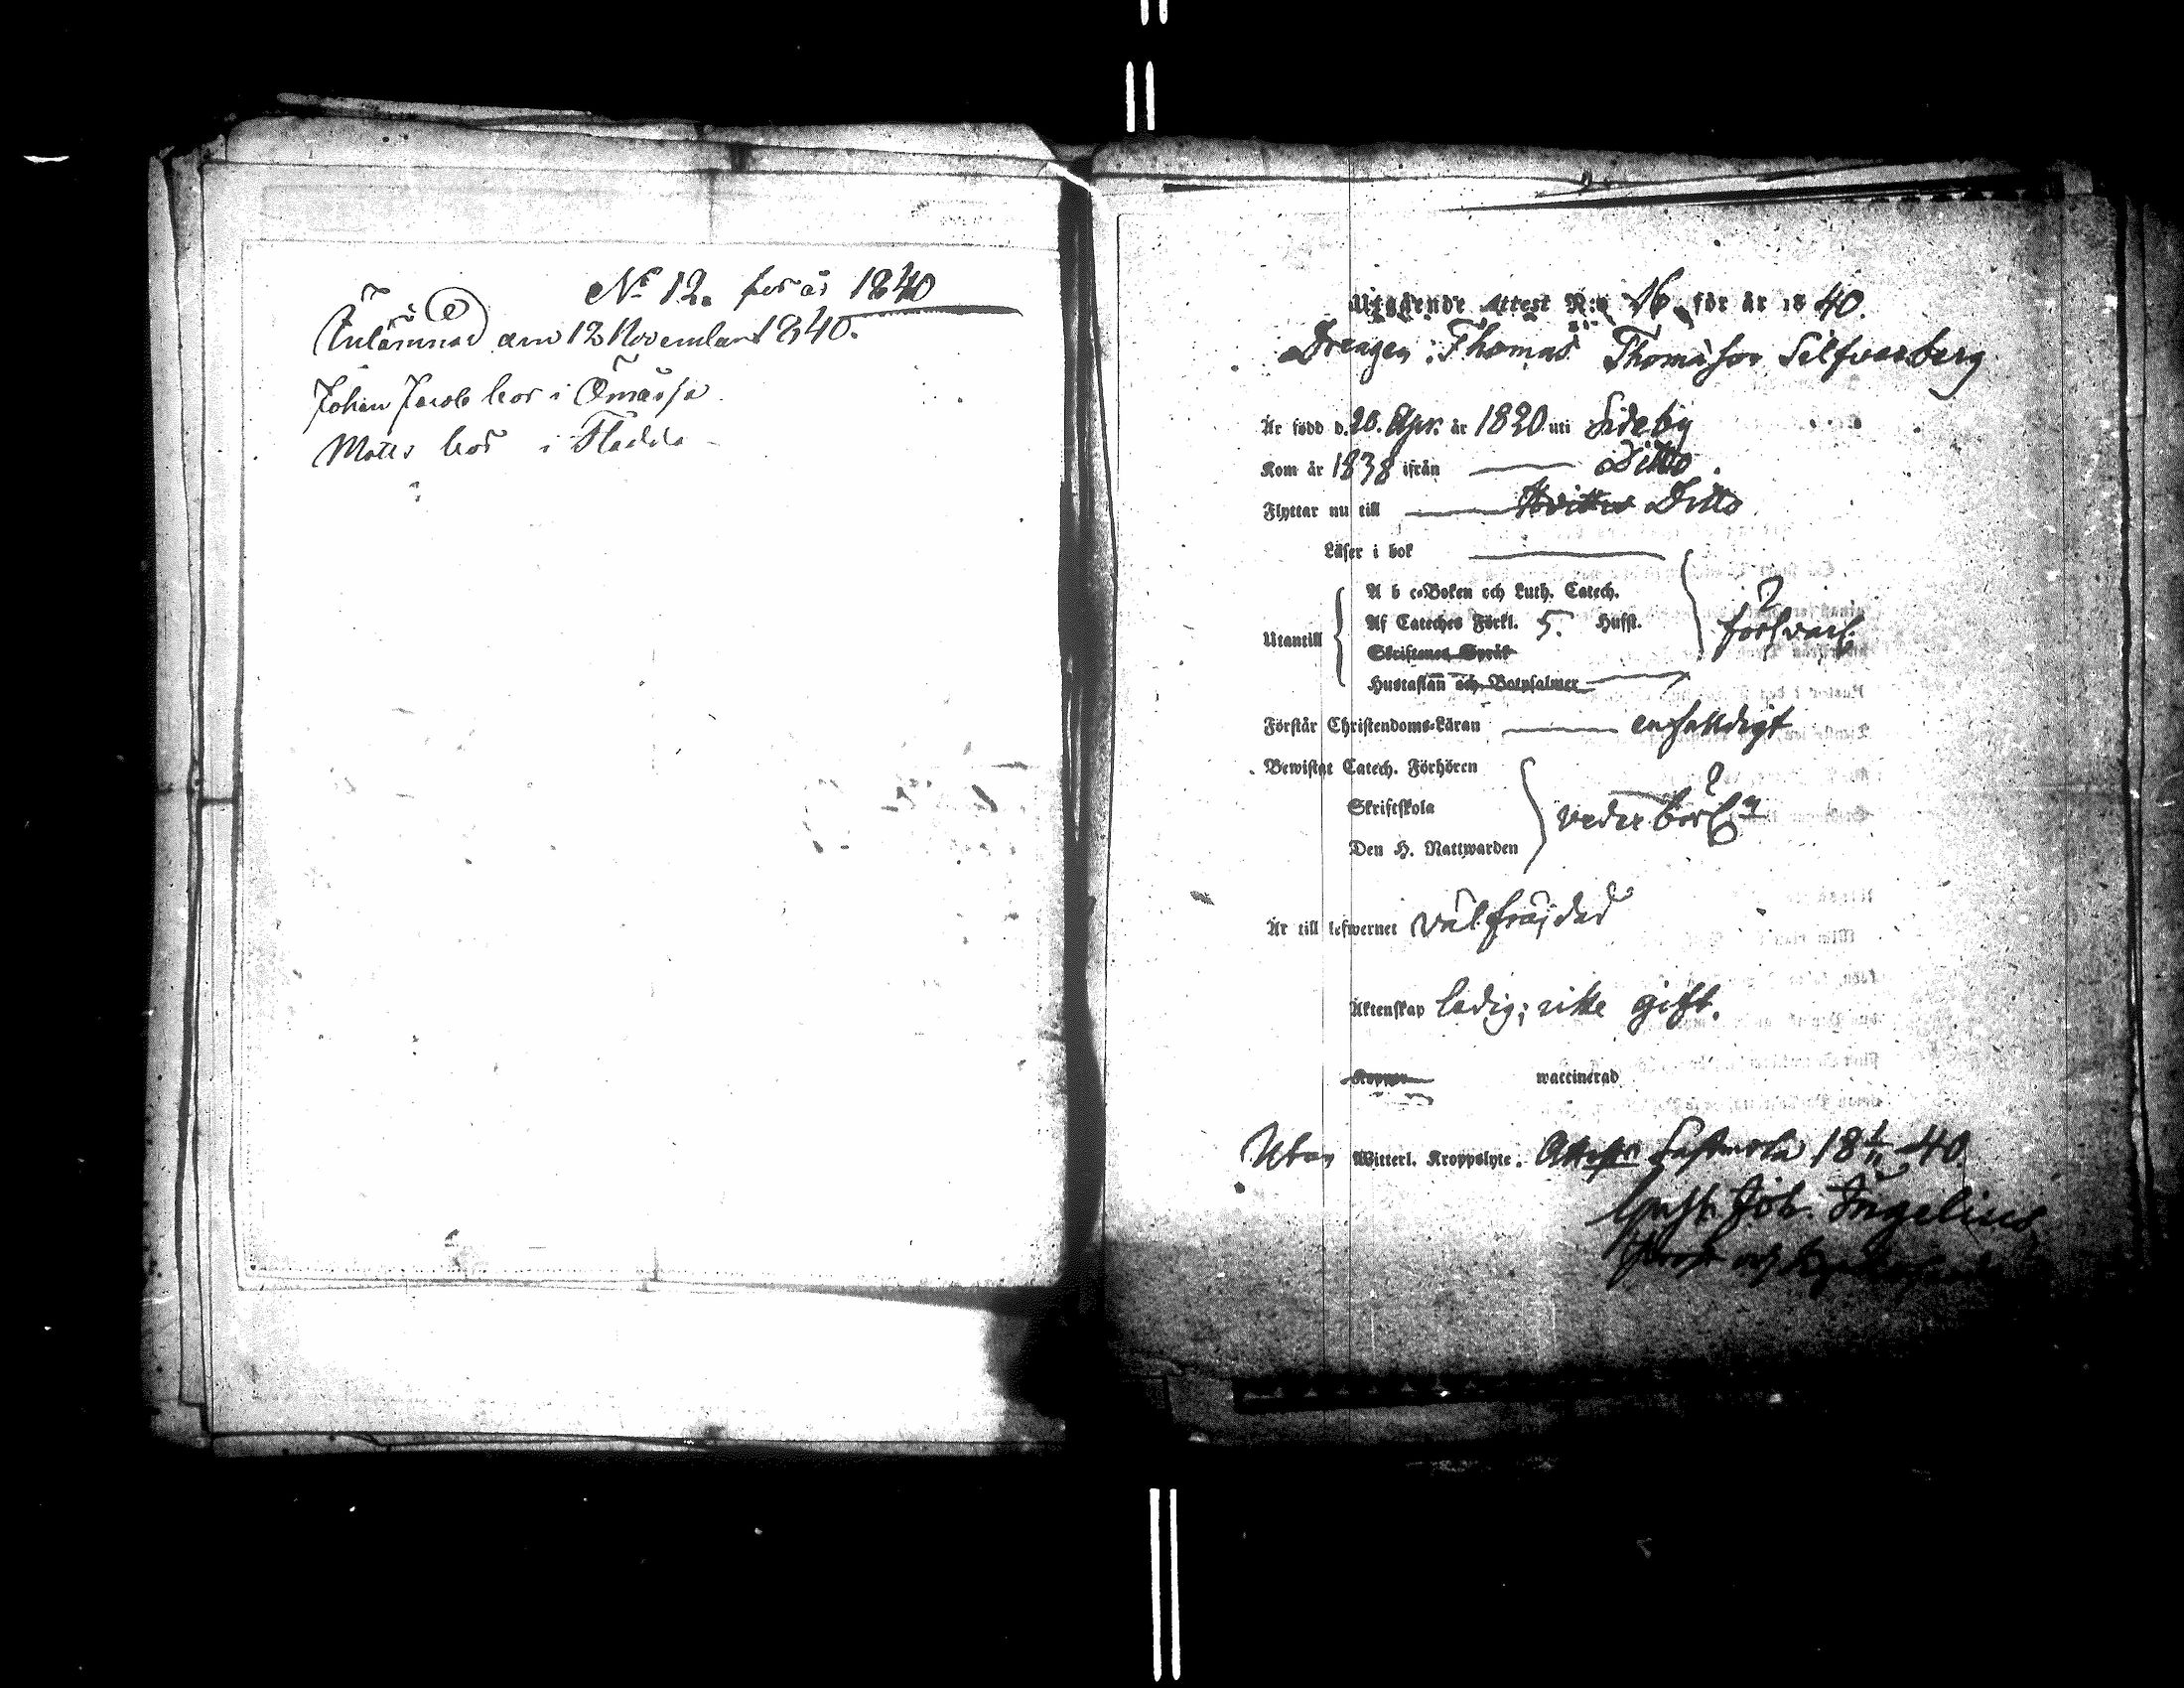 No 12. för år 1840
Inlämnad den 12 November 1840.
Johan Jacob bor i Ömossa
Matts bor i Fladda
Utgående Attest N:o 16 för år 1840.
Drengen Thomas Thomasson Silfverberg
Är född d. 20. Apr. år 1820 uti Sideby
Kom år 1838 ifrån Ditto.
Flyttar nu till Ditto
Läser i bok
A b c-Boken och Luth. Catech.
Utantill Af Cateches Förkl. 5. Hufst. försvarl.
Skriftenes Språk
Hustaflan och Botpsalmer
Förstår Christendoms-Läran enfalldigt
Bewistat Catech. Förhören
Skriftskola vederbörl.
Den H. Nattwarden
Är till lefwernet välfräjdad
Äktenskap ledig; icke gift.
Koppor waccinerad
Utan Witterl. Kroppslyte. Lappo 18 1/11 40.
Gust. Joh. Ingelius